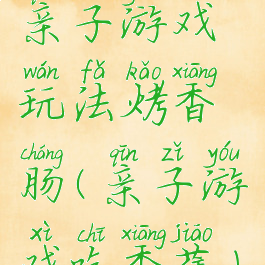 亲子游戏
wán fǎ kǎo xiāng
玩法烤香
cháng qīn zǐ yóu
肠(亲子游
xì chī xiāng jiāo
戏吃香蕉)